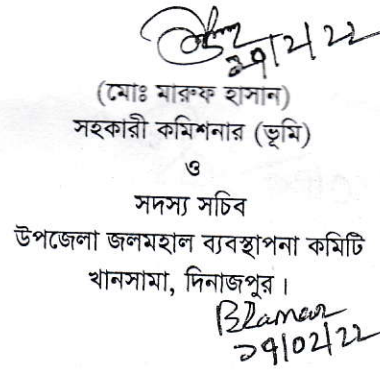 ২৭/২/২২
(মোঃ মারুফ হাসান)
সহকারী কমিশনার (ভূমি)
ও
সদস্য সচিব
উপজেলা জলমহাল ব্যবস্থাপনা কমিটি
খানসামা, দিনাজপুর।